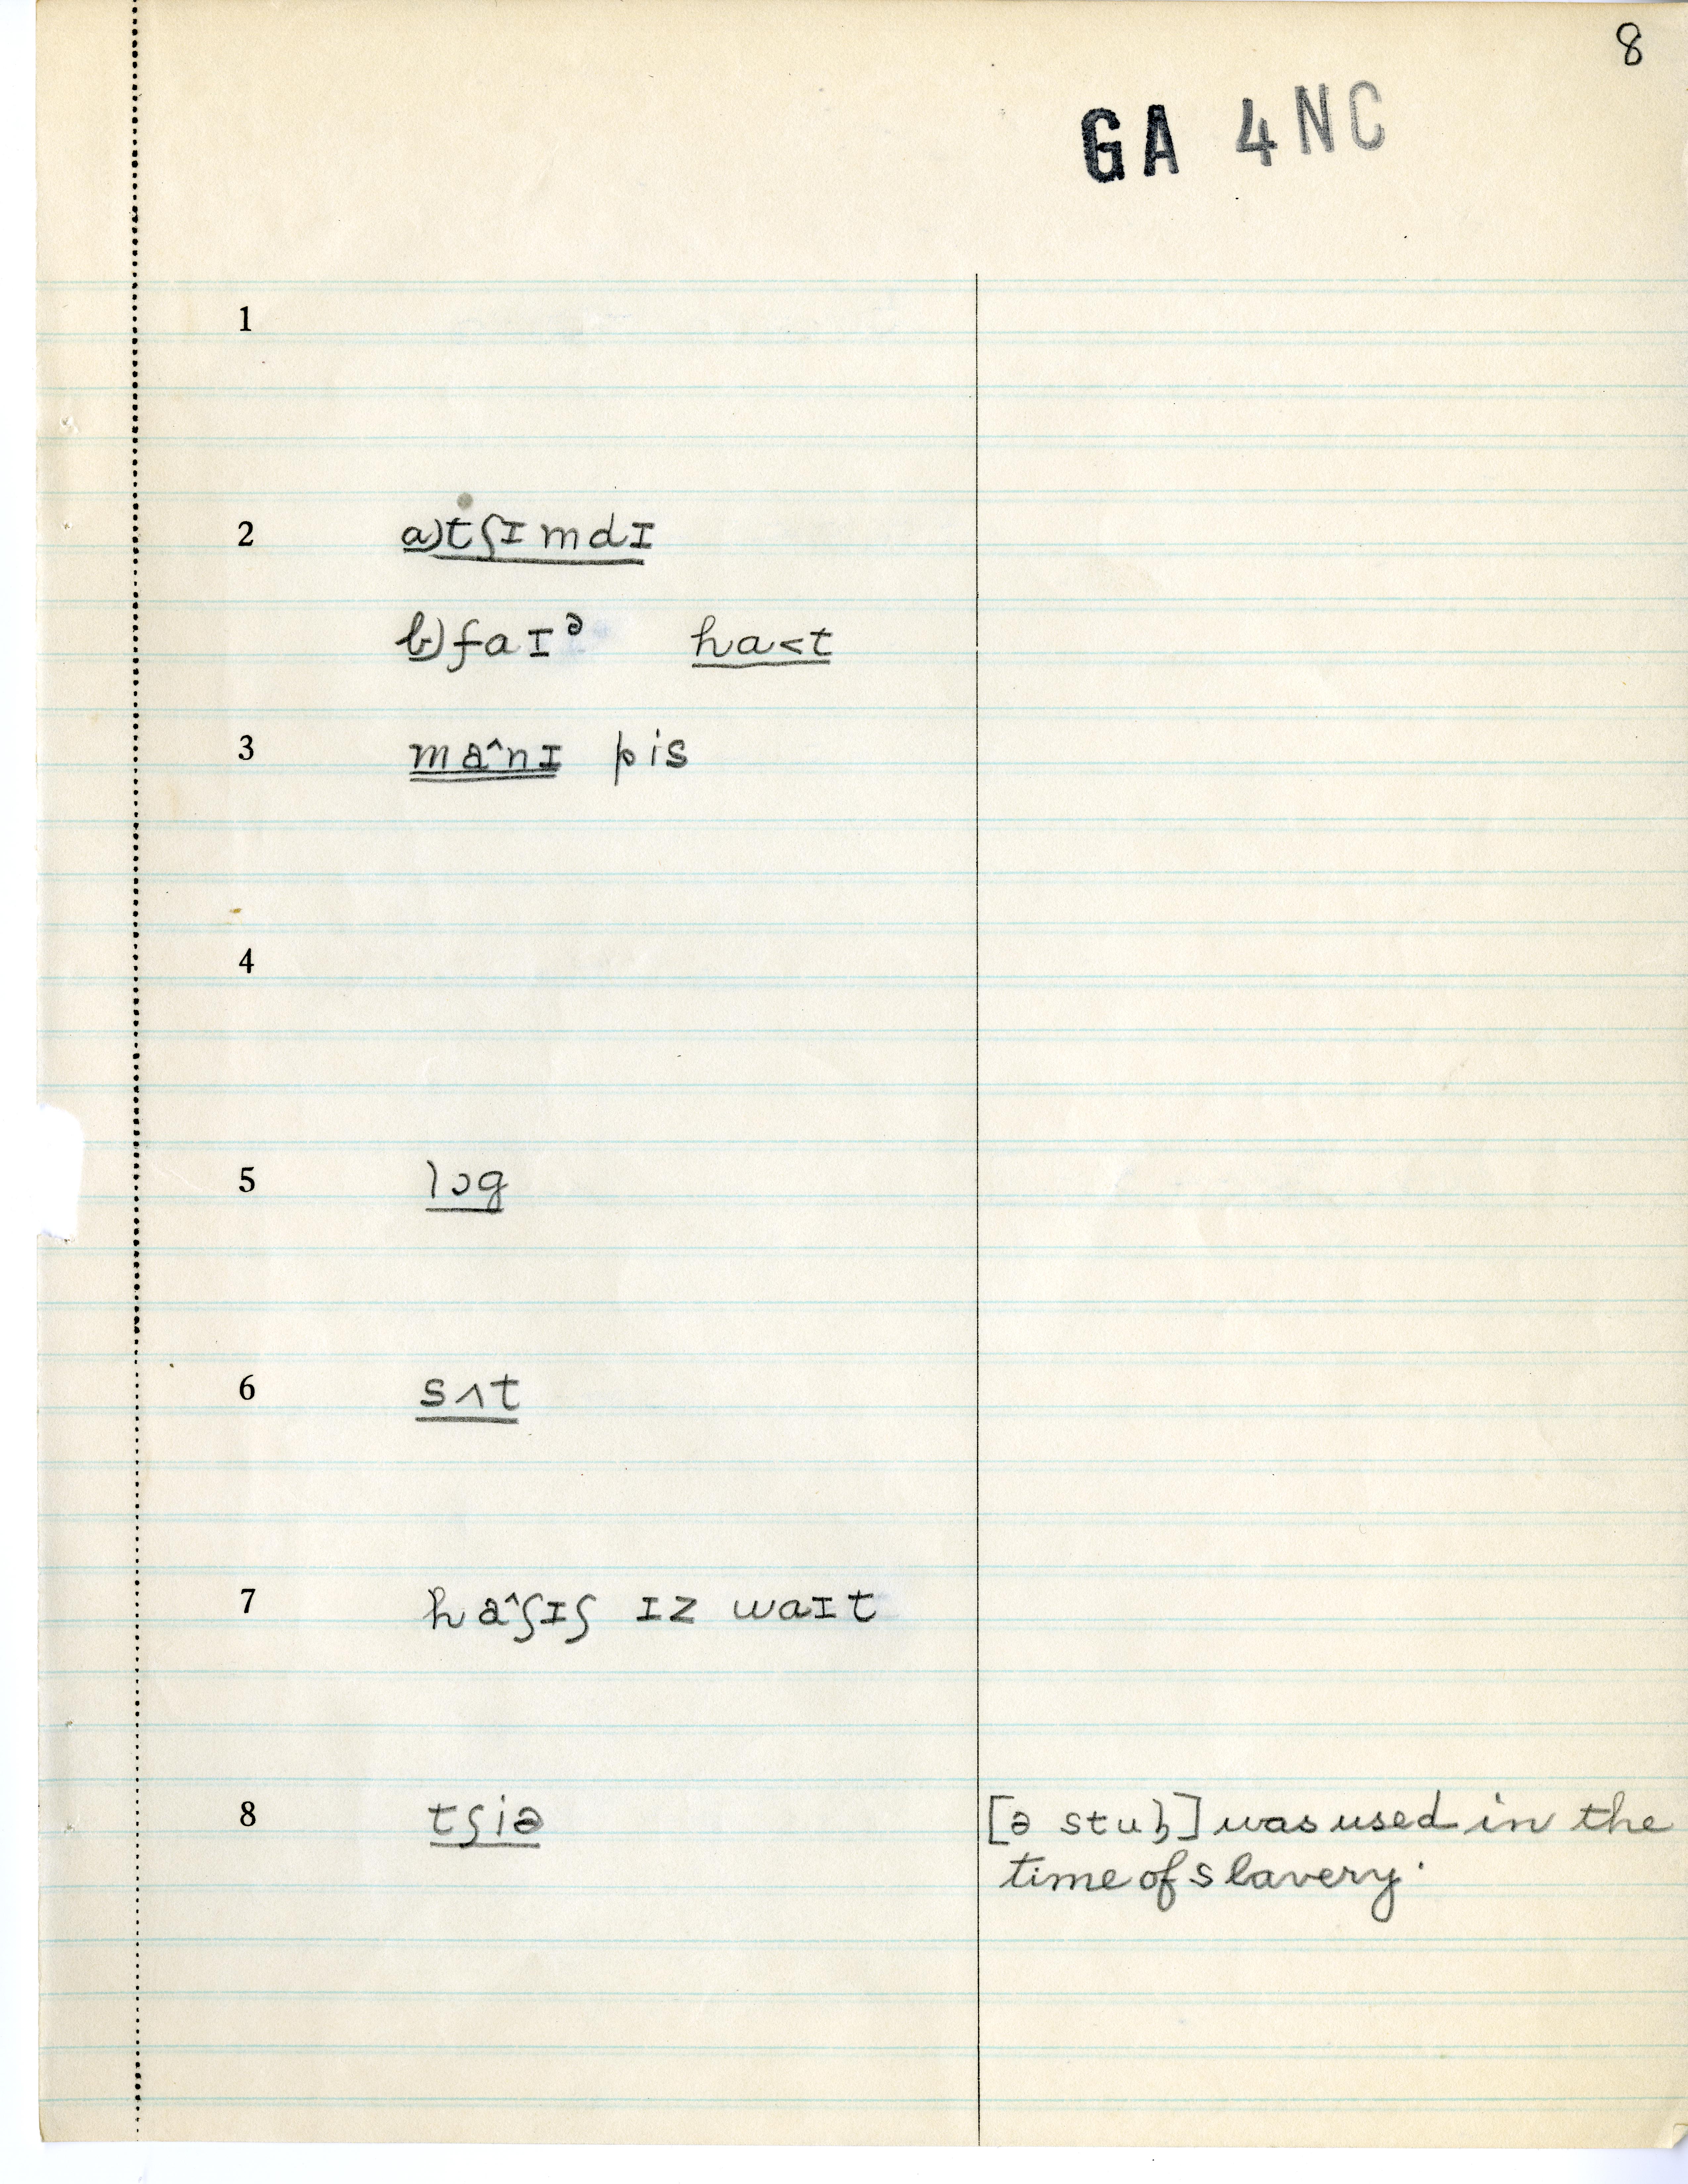 8
GA 4NC
1
2 a) tʃɪmdɪ
b) faɪᵊ ha<t
3 ma^nɪ pis
4
5 lɔg
6 sʌt
7 ha^ʃɪʃ ɪz waɪt
8 tʃiə [ə stuḷ] was used in the
time of slavery.